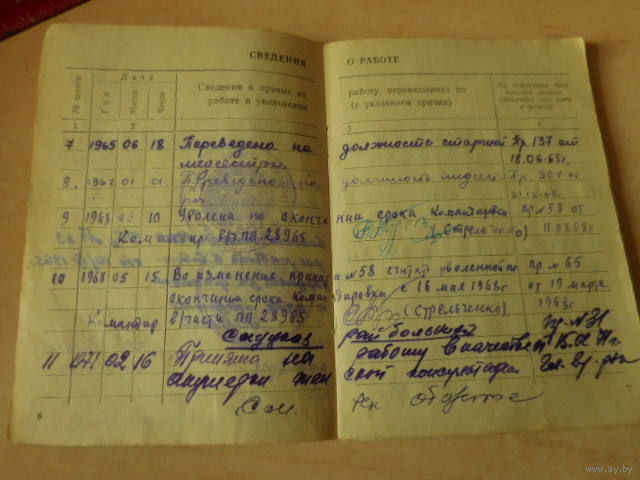 СВЕДЕНИЯ О РАБОТЕ
№ записи
Дата
Год
Месяц
Число
Сведения о приеме на работу, перемещениях по
работе и увольнении (с указанием причин)
На основании чего
внесена запись
(документ, его дата
и номер)
1 2 3 4
7 1965 06 18 Переведена на должность старшей Пр. 137 от
медсестры. 18.06-65г.
8. 1967 01 01 Переведена на должность медсес- Пр. 304 от
9 1968 10 Уволена по оконча нии срока командировки пр № 58 от
Командир в/ч пп 28965 (Стрельченко)
10 1968 05 15 Во изменение приказа № 58 считать уволенной по пр № 65
окончании срока командировки с 16 мая 1968г от 19 марта
1968г
Командир в/части пп 28965 (Стрельченко)
райбольница Пр. № 31
11 1971 02 16 Принята на работу в качестве от 15.02.71г
акушерки жен ской консультации.
6
www.ay.by